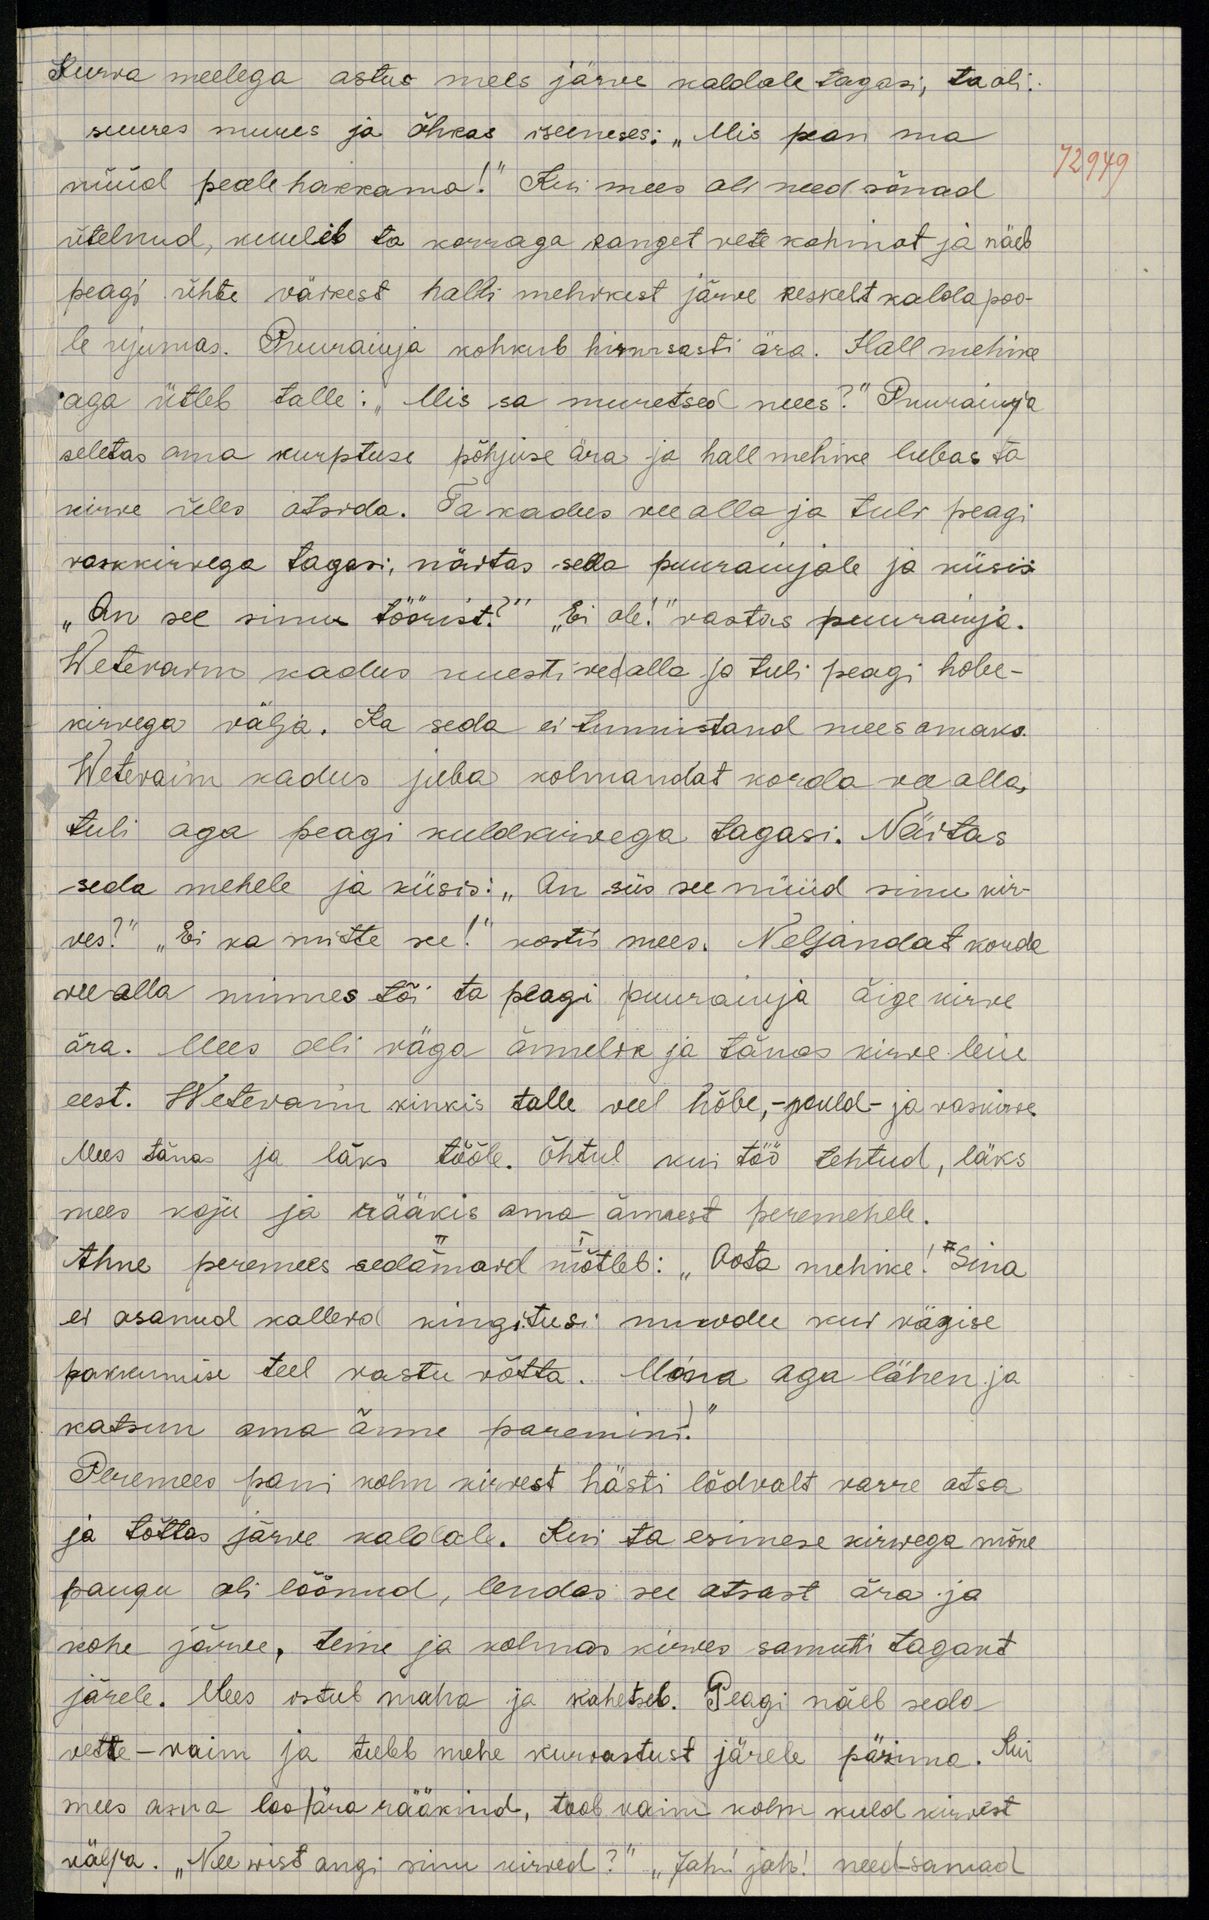 Kurva meelega astus mees järve kaldale tagasi, ta oli
suures mures ja õhkas iseeneses: „Mis pean ma
72949
nüüd peale hakkama!" Kui mees oli need sõnad
ütelnud, kuuleb ta korraga kanget vete kohinat ja näeb
peagi ühte väikest halli mehikest järve keskelt kalda poo-
le ujumas. Puuraiuja kohkub hirmsasti ära. Hall mehike
aga ütleb talle: „Mis sa muretsed mees?" Puuraiuja
seletas oma kurptuse põhjuse ära ja hall mehike lubas ta
kirve üles otsida. Ta kadus vee alla ja tuli peagi
vaskkirvega tagasi, näitas seda puuraiujale ja küsis
„On see sinu tööriist?" „Ei ole!" vastas puuraiuja.
Wetevaim kadus uuesti vee alla ja tuli peagi hobe-
kirvega välja. Ka seda ei tunnistand mees omaks.
Wetevaim kadus juba kolmandat korda vee alla,
tuli aga peagi kuldkirvega tagasi. Näitas
seda mehele ja küsis: „On siis see nüüd sinu kir-
ves?" „Ei ka mitte see!" kostis mees. Neljandat korda
vee alla minnes tõi ta peagi puuraiuja õige kirve
ära. Mees oli väga õnnelik ja tänas kirve leiu
eest. Wetevaim kinkis talle veel hõbe,- kuld- ja vaskirve
Mees tänas ja läks tööle. Õhtul kui töö tehtud, läks
mees koju ja rääkis oma õnnest peremehele.
Ahne peremees sedamaid mõtleb: „Oota mehike! Sina
ei osanud kalleid kingitusi muudu kui vägise
pakkumise teel vastu võtta. Mina aga lähen ja
katsun oma õnne paremini."
Peremees pani kolm kirvest hästi lõdvalt varre otsa
ja tõttas järve kaldale. Kui ta esimese kirwega mõne
paugu oli löönud, lendas see otsast ära ja
kohe järve, teine ja kolmas kirves samuti tagant
järele. Mees istub maha ja kahetseb. Peagi näeb seda
vette-vaim ja tuleb mehe kurvastust järele pärima. Kui
mees asna loo ära rääkind, toob vaim kolm kuld kirvest
välja. „Nee wist ongi sinu kirved?" „Jah! jah! need-samad